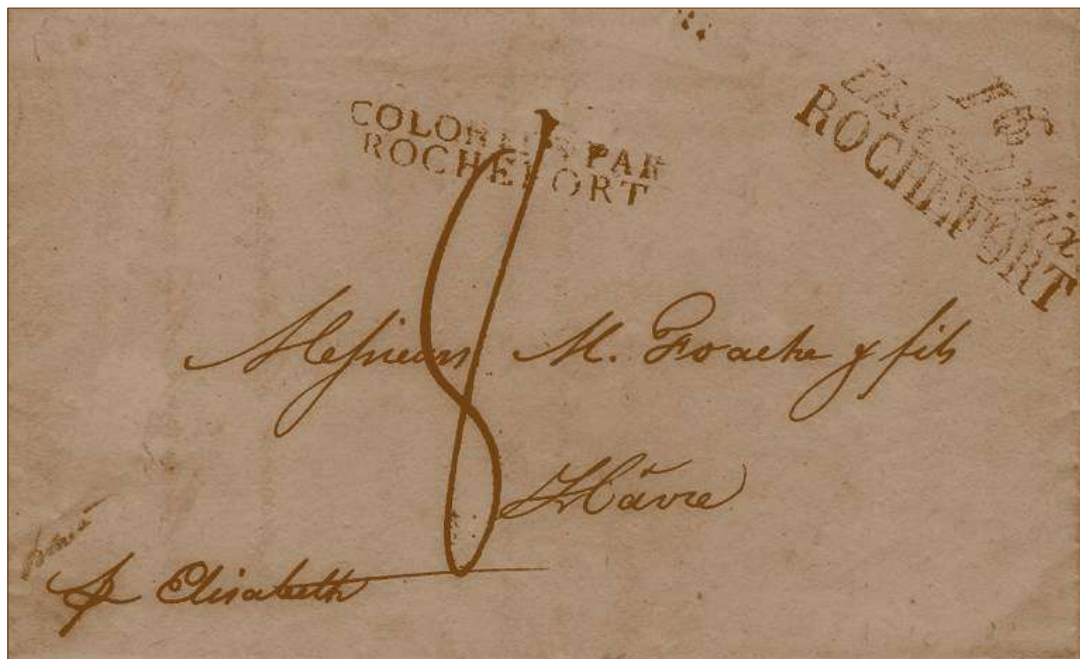 COLONIES PAR
ROCHEFORT
16
ROCHEFORT
8
Messieurs M. Foache & fils
Hâvre
p Elisabeth